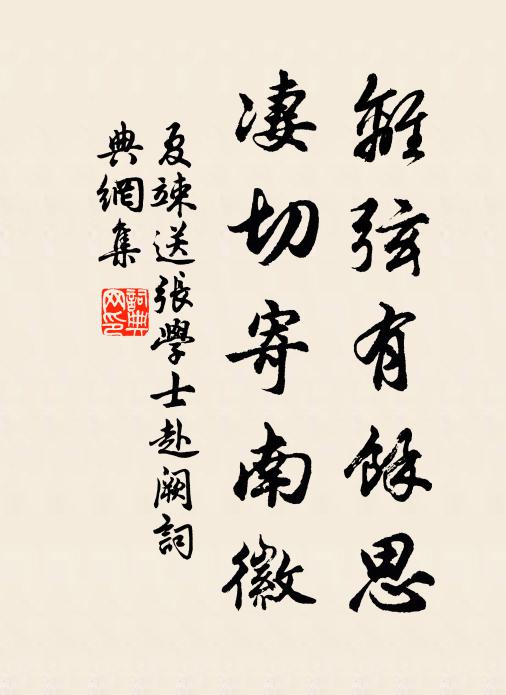 離弦有餘思
凄切寄南徽
夏竦送張學士赴闕詞
典網集
詞典網印